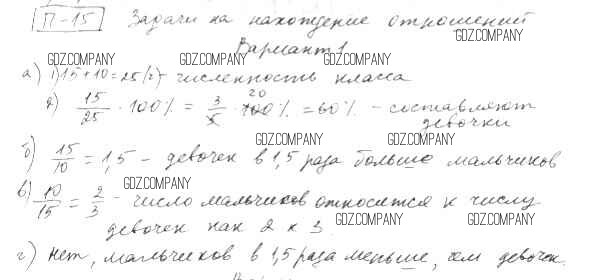 П-15 Задачи на нахождение отношений
GDZ.COMPANY
Вариант 1
GDZ.COMPANY GDZ.COMPANY GDZ.COMPANY
а) 1) 15 + 10 = 25 (2) - численность класса
2) 15/25 · 100% = 3/5 · 100% 20 = 60% - составляют
девочки
GDZ.COMPANY GDZ.COMPANY
б) 15/10 = 1,5 - девочек в 1,5 раза больше мальчиков
GDZ.COMPANY
в) 10/15 = 2/3 - число мальчиков относится к числу
девочек как 2 к 3
GDZ.COMPANY GDZ.COMPANY
г) Нет, мальчиков в 1,5 раза меньше, чем девочек.